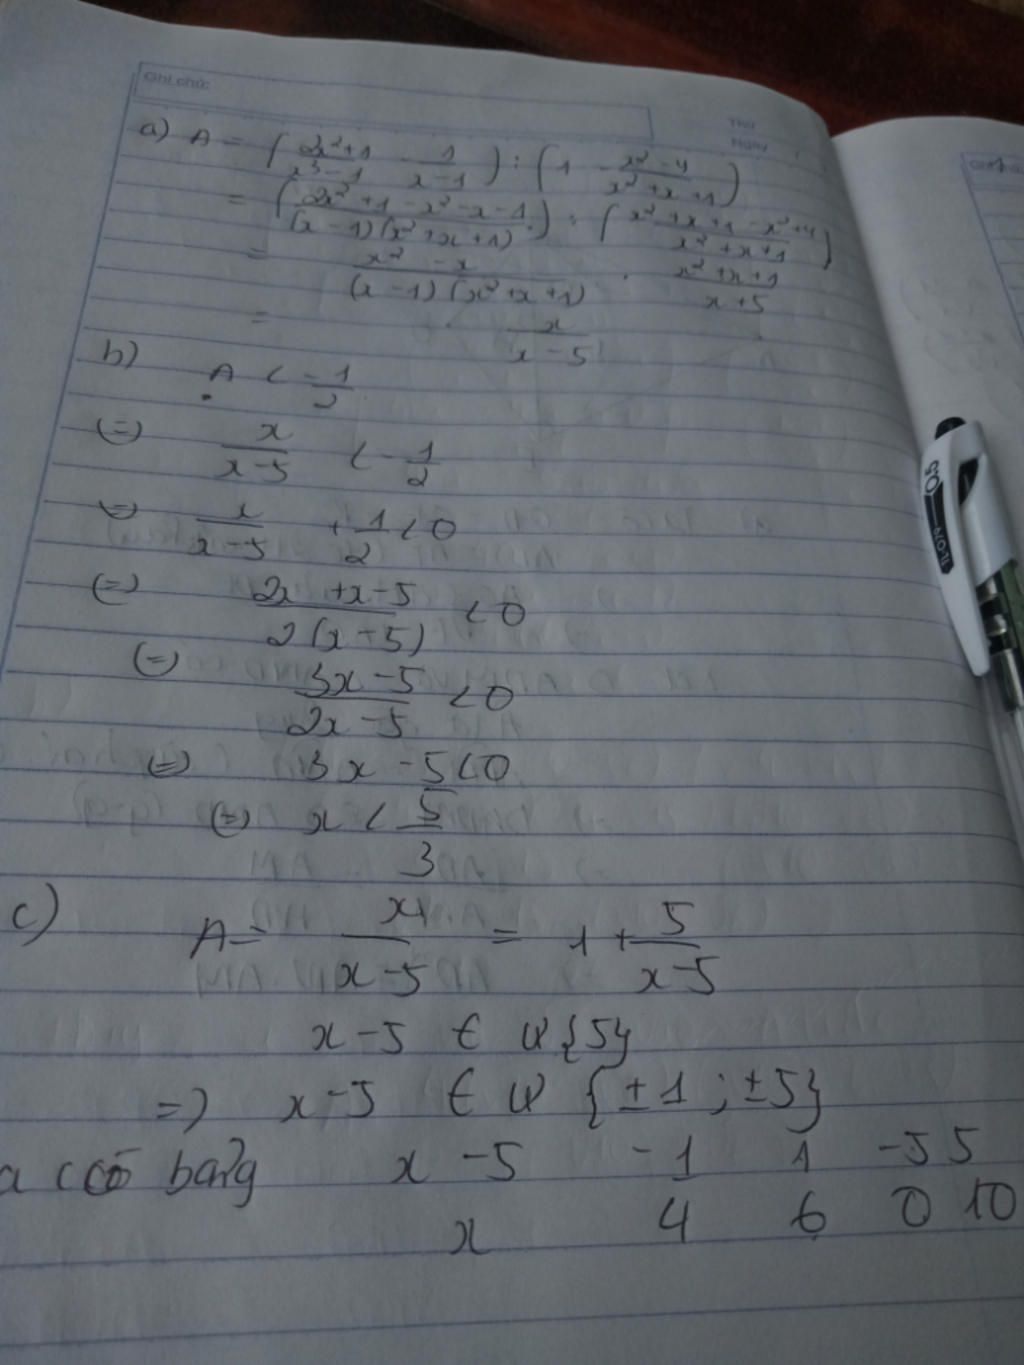 Ghi chú:
Thứ
Ngày
a) A = (2x²+1/x³-1 - 1/x-1) : (1 - x²-4/x²+x+1)
= (2x²+1-x²-x-1/(x-1)(x²+x+1)) : (x²+x+1-x²+4/x²+x+1)
= x²-x/(x-1)(x²+x+1) . x²+x+1/x+5
= x/x-5
b) A < -1/2
(=) x/x-5 < -1/2
(=) x/x-5 + 1/2 < 0
(=) 2x+x-5/2(x-5) < 0
(=) 3x-5/2x-5 < 0
(=) 3x-5<0
(=) x < 5/3
c) A = x/x-5 = 1+5/x-5
x-5 € Ư{5}
=> x-5 € Ư {±1; ±5}
a có bảng x-5 -1 1 -5 5
x 4 6 0 10
0.5